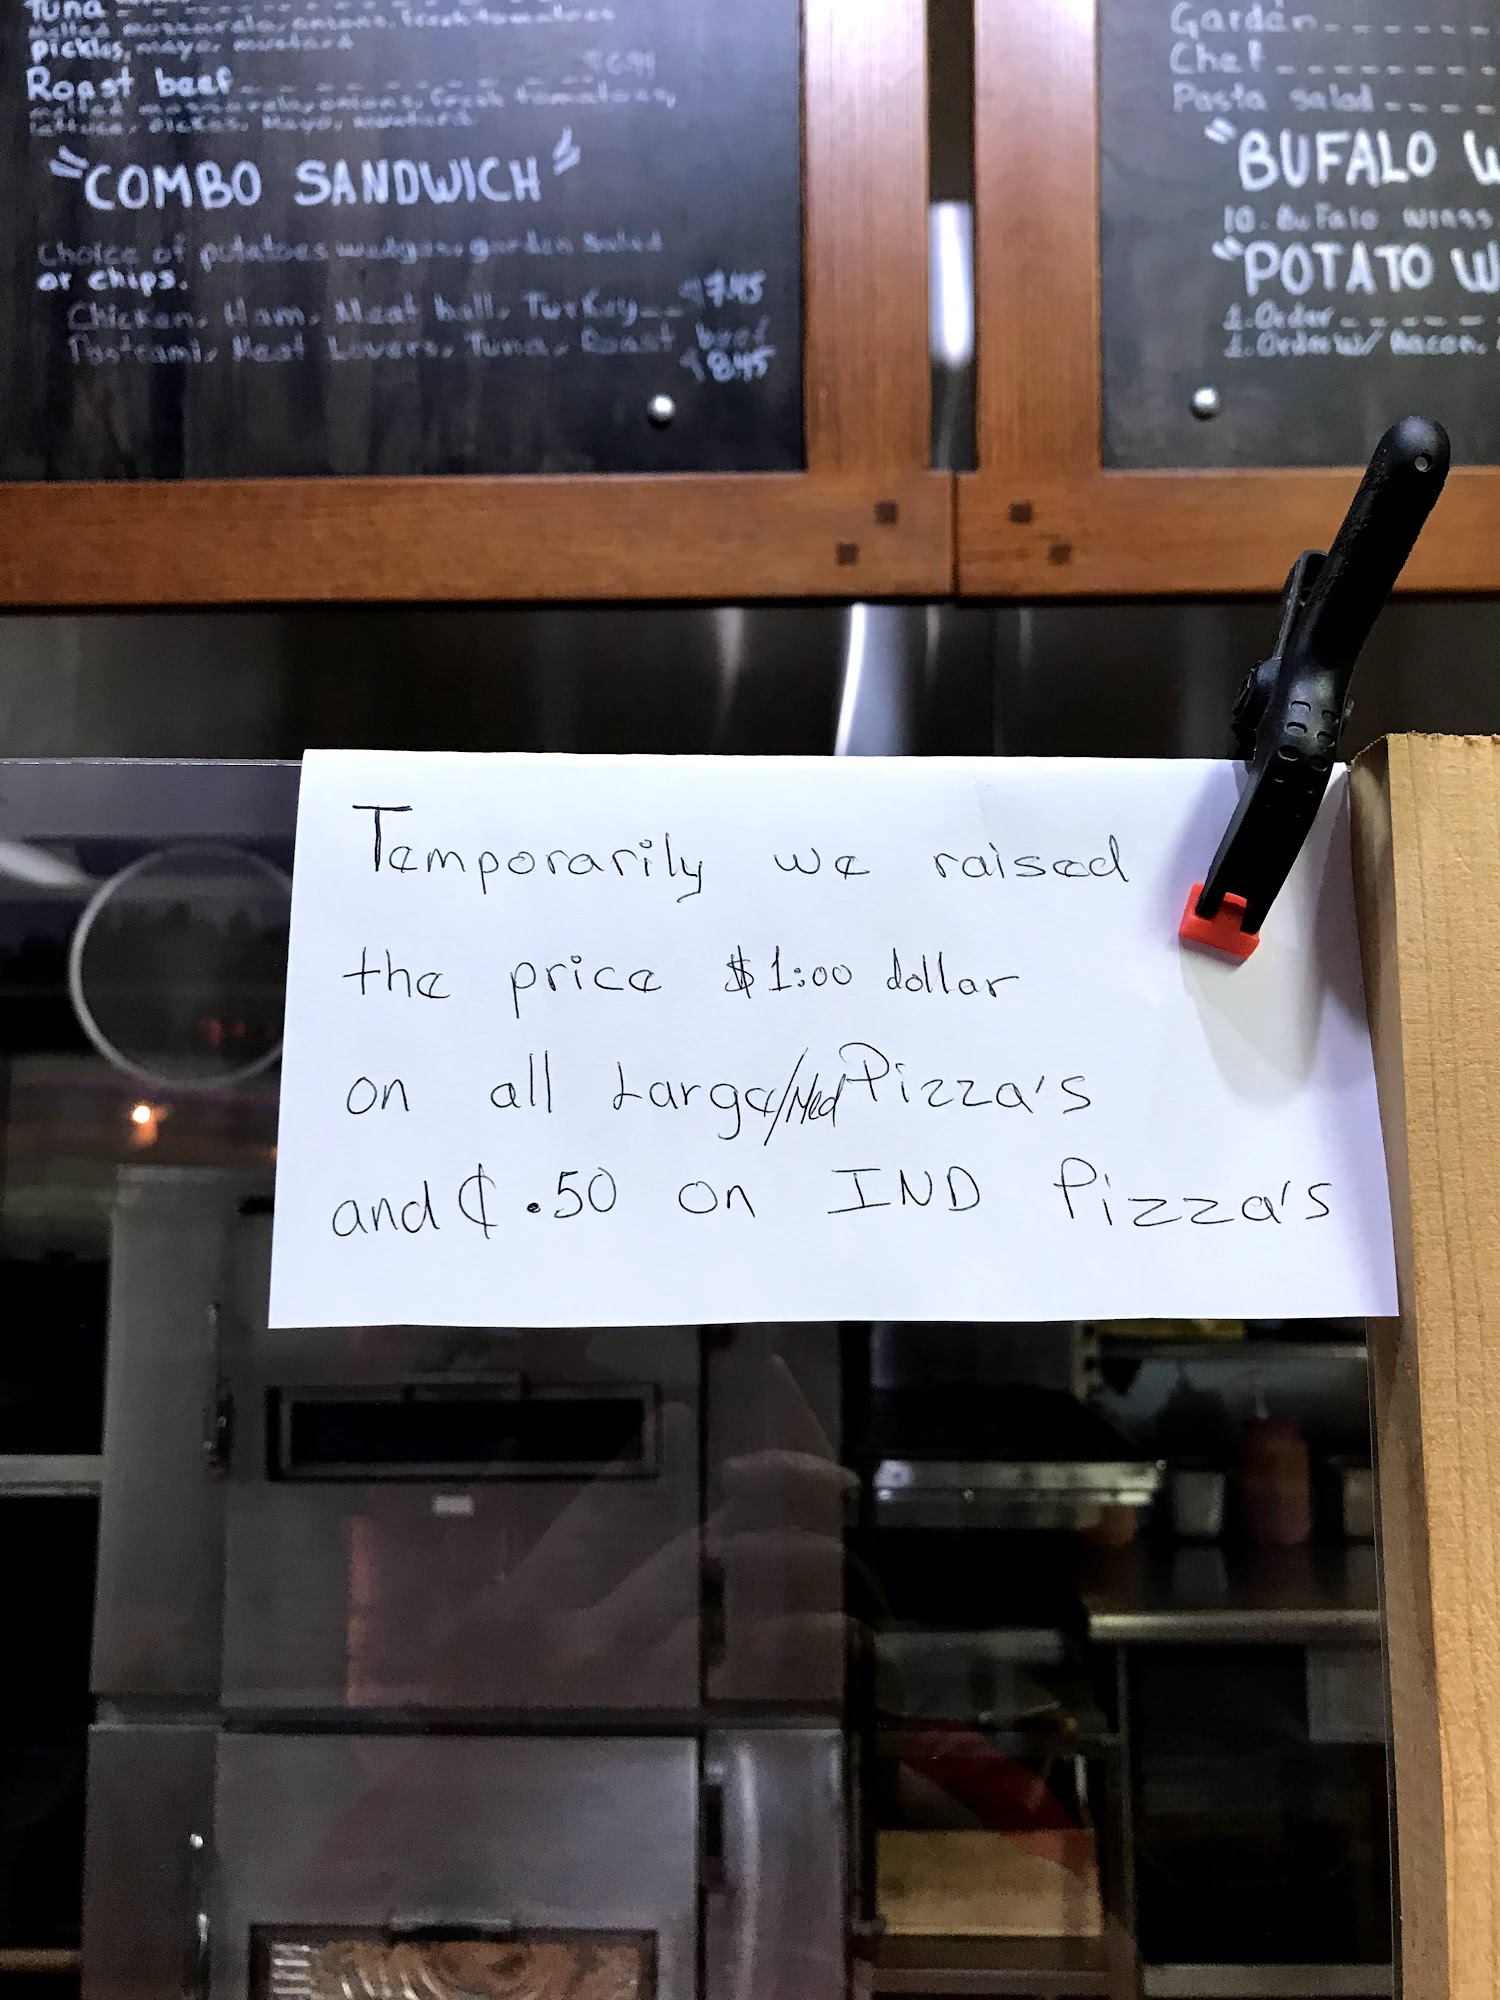 Tuna
pickles, mayo, mustard
Roast beef
lettuce, mayo, mustard
"COMBO SANDWICH"
Choice of potatoes wedges, garden salad
or chips.
Chicken, Ham, Meat ball, Turkey $7.45
Pastrami, Meat Lovers, Tuna, Roast beef
$8.45
Garden
Chef
Pasta salad
"BUFALO W
10. Buffalo wings
"POTATO W
1. Order
1. Order W/ Bacon.
Temporarily we raised
the price $1:00 dollar
on all Large/Med Pizza's
and ₵ .50 on IND Pizza's